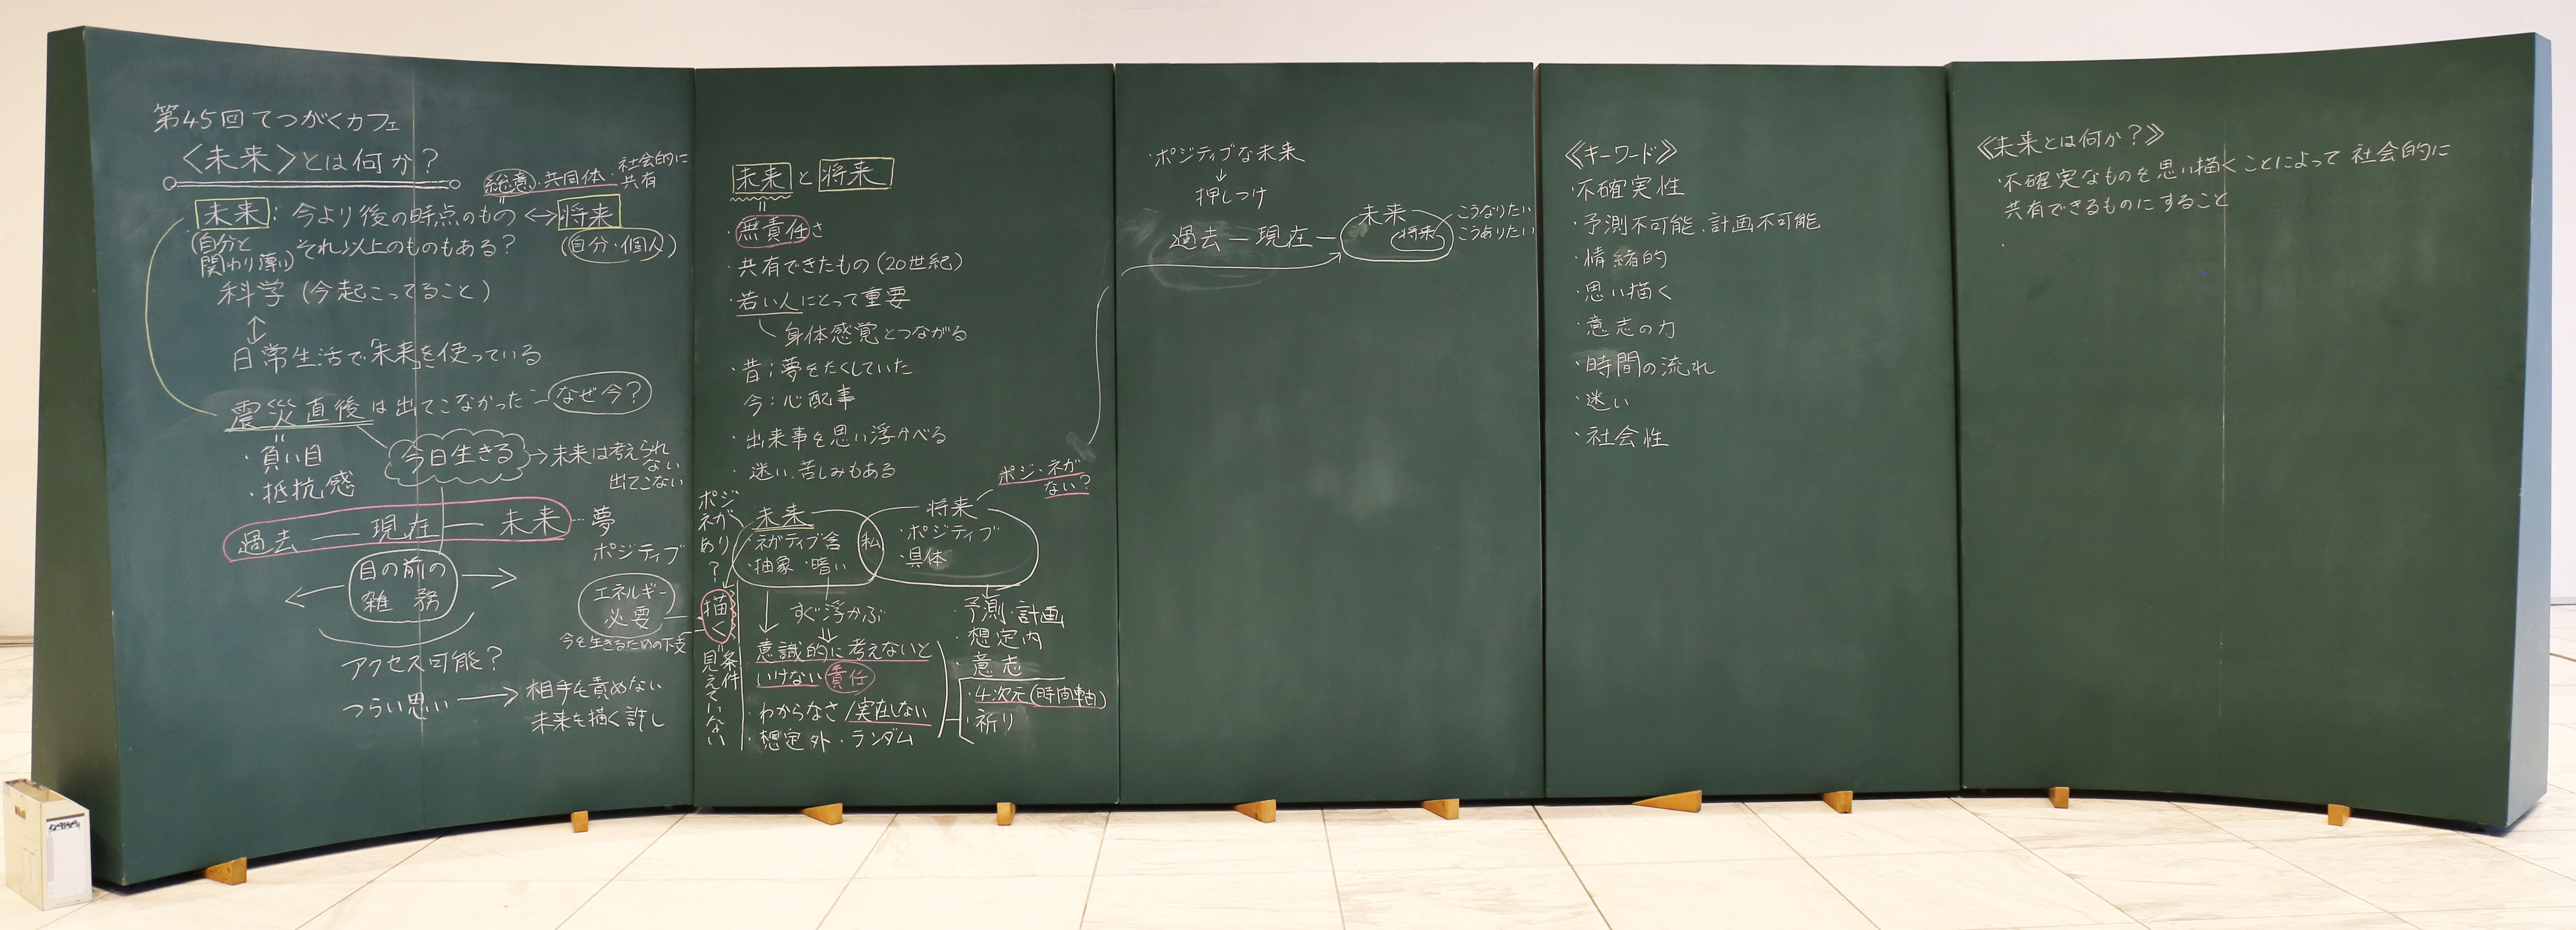 第45回てつがくカフェ
〈未来〉とは何か?
総意・共同体・社会的に
共有
未来:今より後の時点のもの⟷将来
(自分と
関わり薄い)
それ以上のものもある?
(自分・個人)
科学(今起こってること)
↕
日常生活で「未来」を使っている
震災直後は出てこなかった
なぜ今?
・負い目
・抵抗感
今日生きる→未来は考えられ
ない
出てこない
過去―現在―未来…夢
ポジティブ
目の前の
雑務
エネルギー
必要
今を生きるための下支
アクセス可能?
つらい思い→相手を責めない
未来を描く許し
未来と将来
・無責任さ
・共有できたもの(20世紀)
・若い人にとって重要
身体感覚とつながる
・昔:夢をたくしていた
今:心配事
・出来事を思い浮かべる
・迷い、苦しみもある
ポジ・ネガ
ない?
ポジ
ネガ
あり?
未来
・ネガティブ含
・抽象・暗い
私
将来
・ポジティブ
・具体
描く
条件
見えていない
すぐ浮かぶ
意識的に考えないと
いけない 責任
・わからなさ/実在しない
・想定外・ランダム
・予測・計画
・想定内
・意志
・4次元(時間軸)
・祈り
・ポジティブな未来
↓
押しつけ
過去―現在―未来
将来
こうなりたい
こうありたい
《キーワード》
・不確実性
・予測不可能、計画不可能
・情緒的
・思い描く
・意志の力
・時間の流れ
・迷い
・社会性
《未来とは何か?》
・不確実なものを思い描くことによって社会的に
共有できるものにすること
・